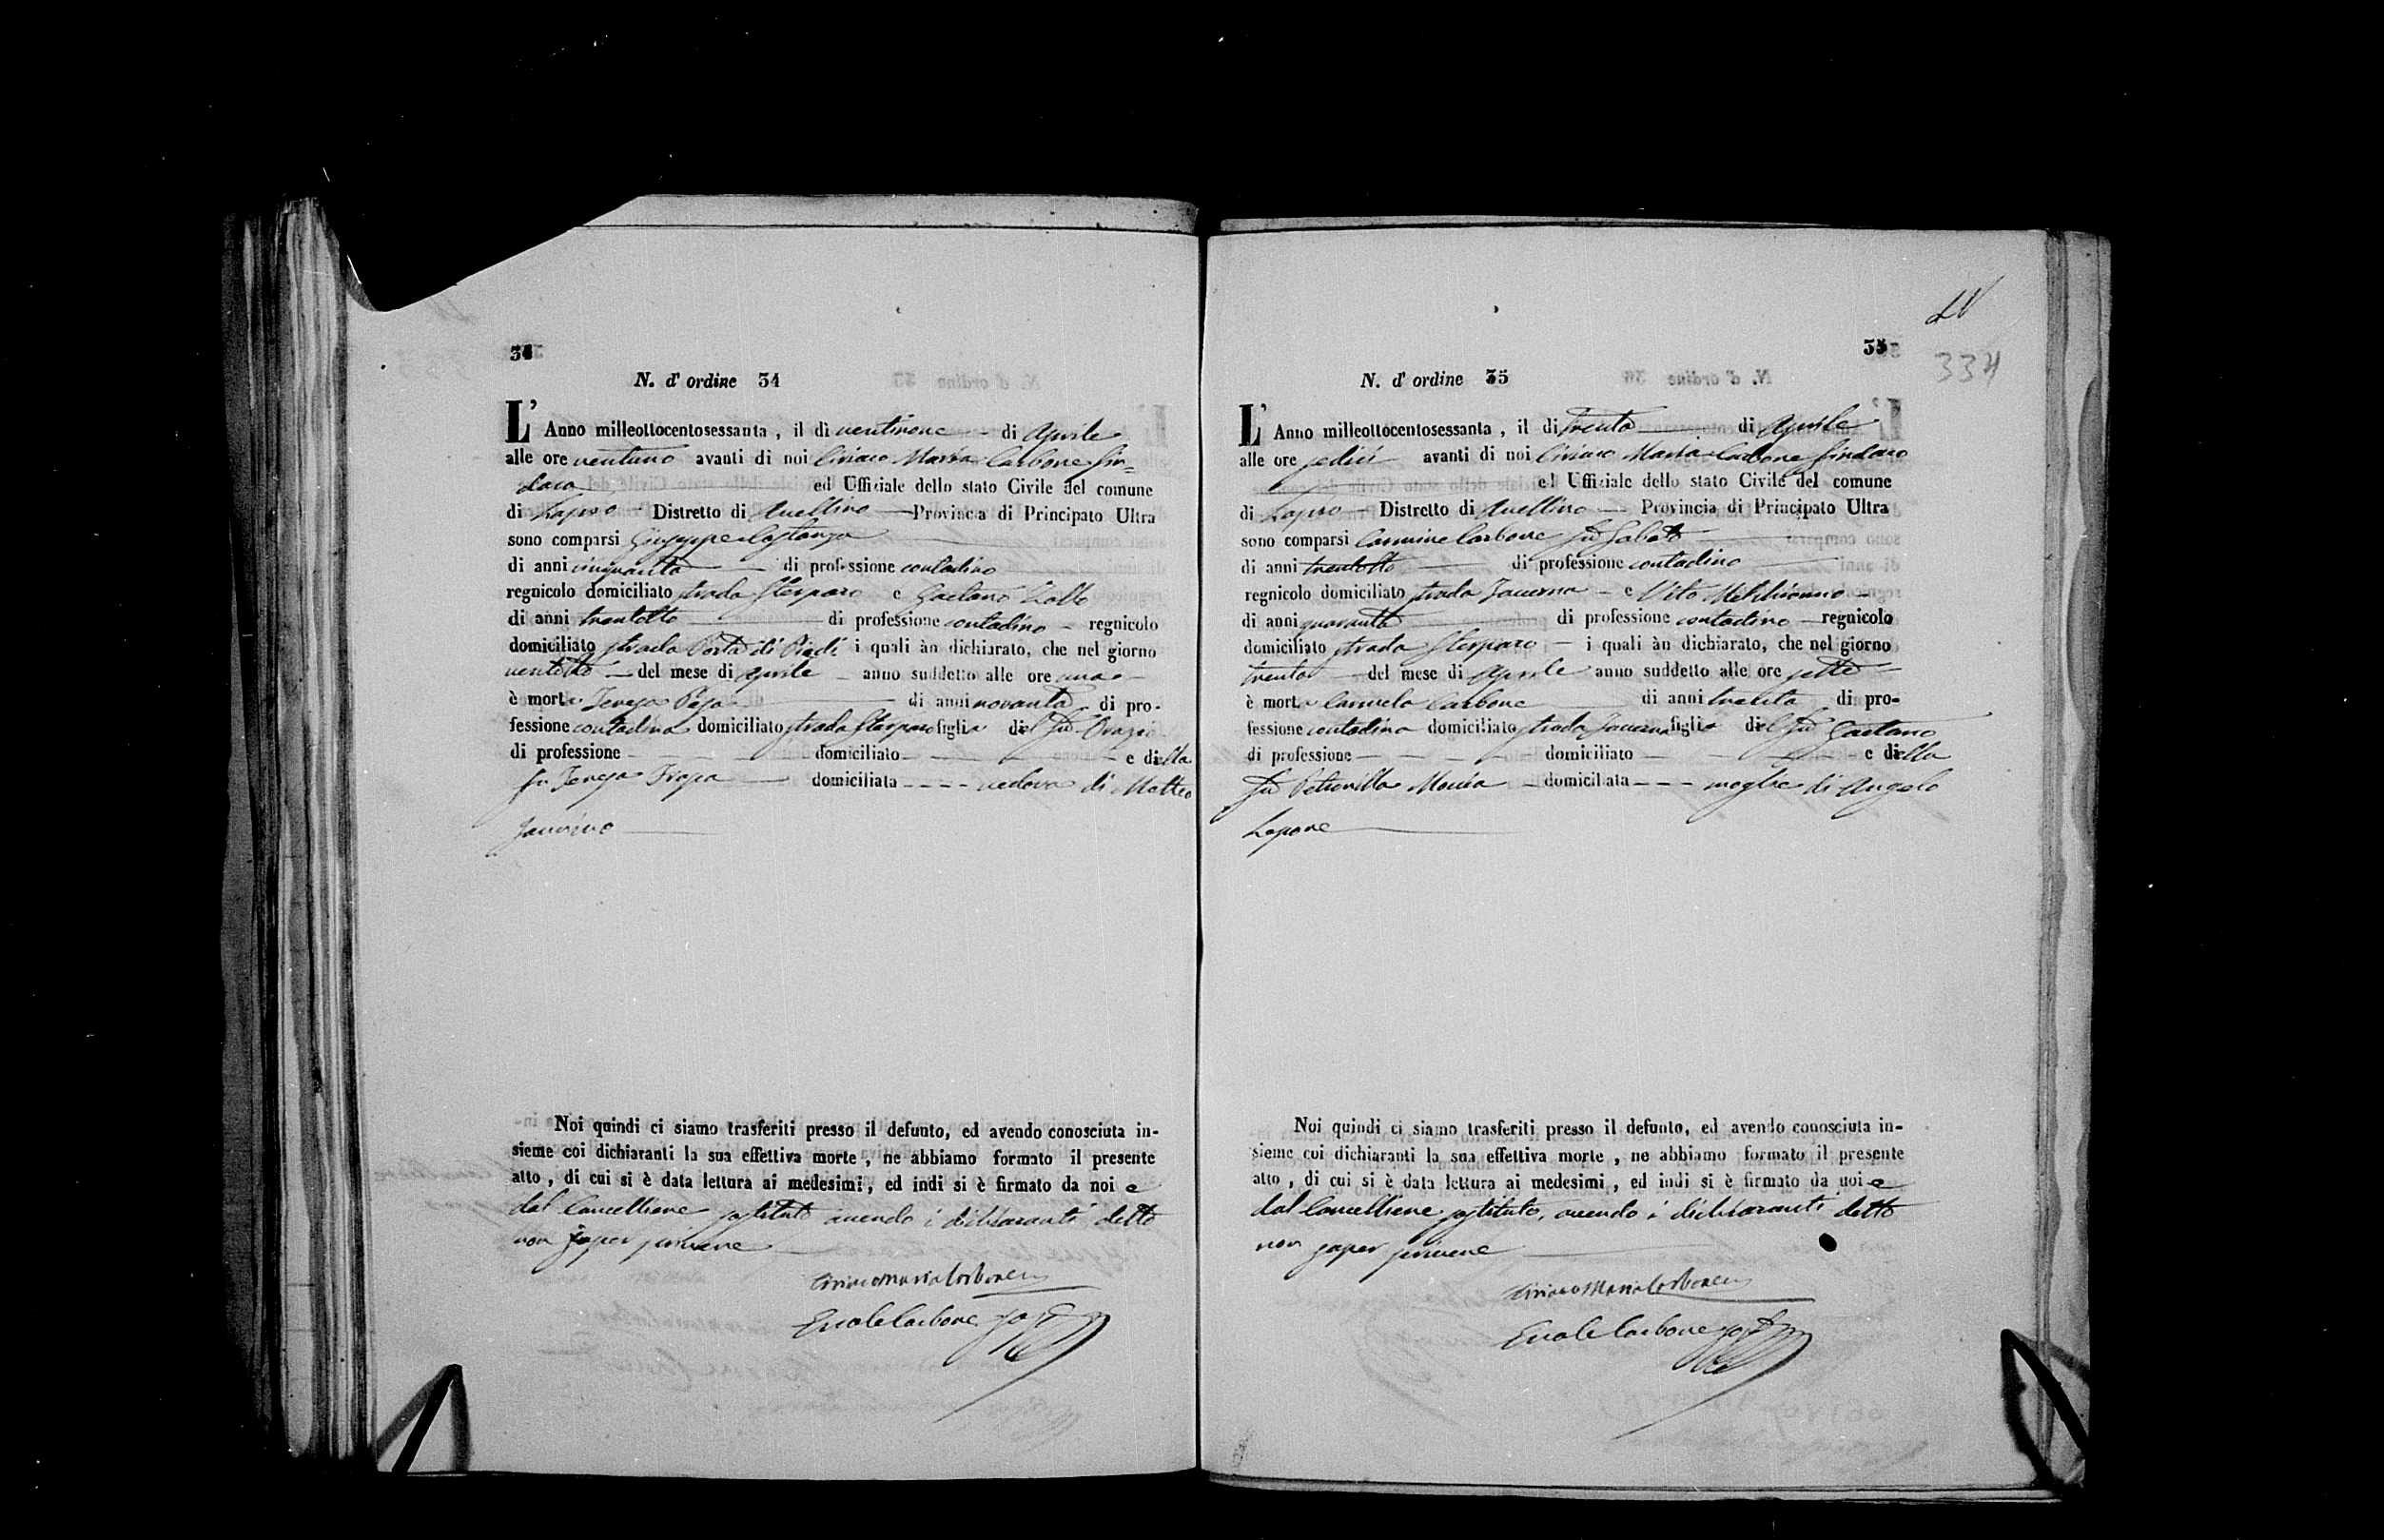 34
N. d' ordine 34
L' Anno milleottocentosessanta, il di ventinove - di Aprile
alle ore ventuno avanti di noi Ciriaco Maria Carbone Sin=
daco ed Uffiziale dello stato Civile del comune
di Lapio - Distretto di Avellino - Provincia di Principato Ultra
sono comparsi Giuseppe Costanza
di anni cinquanta - di professione contadino
regnicolo domiciliato strada e Gaetano
di anni trentotto - di professione contadino - regnicolo
domiciliato strada Porta di Piedi i quali àn dichiarato, che nel giorno
ventotto - del mese di Aprile - anno suddetto alle ore una -
è morta Teresa - di anni novanta di pro-
fessione contadina domiciliato strada figlia del fu Orazio
di professione - domiciliato - e della
fu Teresa - domiciliata - - - - vedova di Matteo
N. d' ordine 34
Noi quindi ci siamo trasferiti presso il defunto, ed avendo conosciuta in-
sieme coi dichiaranti la sua effettiva morte, ne abbiamo formato il presente
atto, di cui si è data lettura ai medesimi, ed indi si è firmato da noi e
dal Cancelliere sostituto avendo i dichiaranti detto
non saper scrivere
Ciriaco Maria Carbone
Carbone
35
334
N. d' ordine 35
L' Anno milleottocentosessanta, il di trenta - di Aprile
alle ore sedici avanti di noi Ciriaco Maria Carbone Sindaco
ed Uffiziale dello stato Civile del comune
di Lapio - Distretto di Avellino - Provincia di Principato Ultra
sono comparsi Carmine Carbone fu Sabato
di anni trentotto - di professione contadino
regnicolo domiciliato strada Taverna - e Vito -
di anni quaranta - di professione contadino - regnicolo
domiciliato strada - i quali àn dichiarato, che nel giorno
trenta - del mese di Aprile anno suddetto alle ore sette -
è morta Carmela Carbone - di anni trenta di pro-
fessione contadina domiciliato strada Taverna figlia del fu Gaetano
di professione - domiciliato - e della
fu Petronilla - domiciliata - - - moglie di Angelo
Noi quindi ci siamo trasferiti presso il defunto, ed avendo conosciuta in-
sieme coi dichiaranti la sua effettiva morte, ne abbiamo formato il presente
atto, di cui si è data lettura ai medesimi, ed indi si è firmato da noi e
dal Cancelliere sostituto, avendo i dichiaranti detto
non saper scrivere
Ciriaco Maria Carbone
Carbone